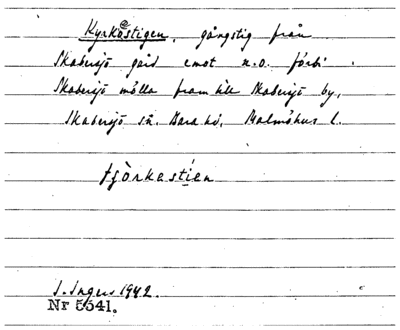 Kyrkestigen, gångstig från
Skabersjö gård emot n.o. förbi
Skabersjö mölla fram till Skabersjö by,
Skabersjö sn. Bara hd, Malmöhus l.
tjörkestien
J. Ingers 1942.
Nr 5541.